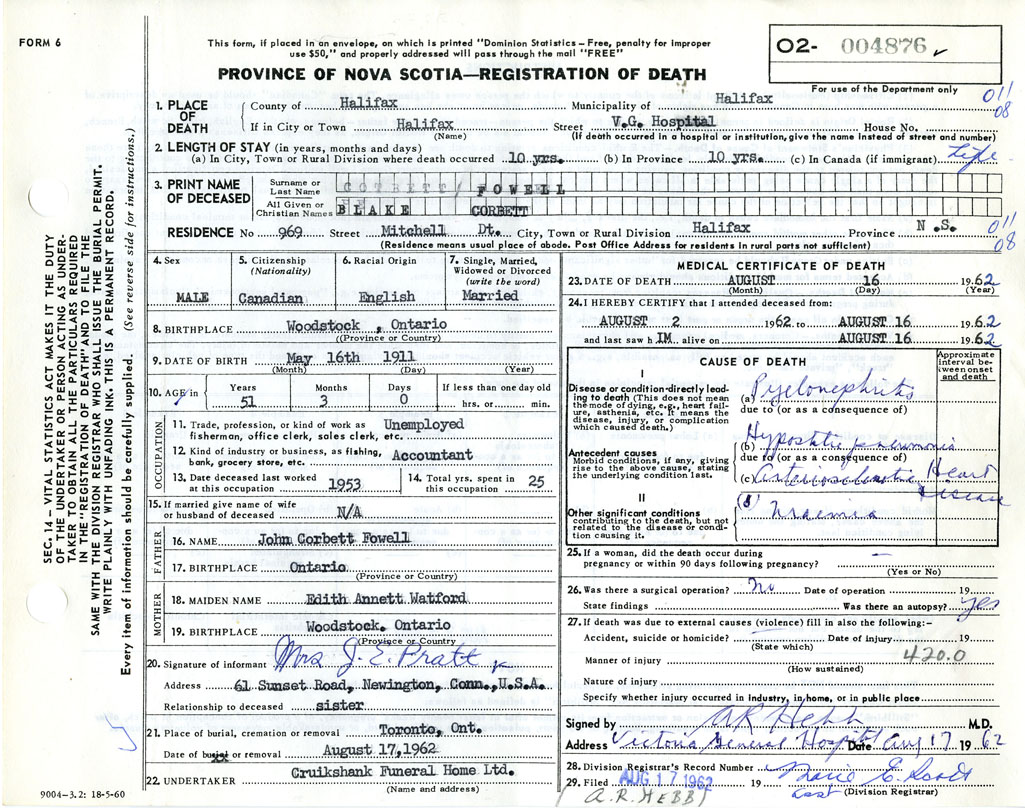 FORM 6
This form, if placed in an envelope, on which is printed "Dominion Statistics – Free, penalty for improper
use $50," and properly addressed will pass through the mail "FREE"
O2- 004876
PROVINCE OF NOVA SCOTIA—REGISTRATION OF DEATH
For use of the Department only
011
08
1. PLACE OF DEATH
County of Halifax Municipality of Halifax
If in City or Town Halifax Street V.G. Hospital House No.
(Name) (If death occurred in a hospital or institution, give the name instead of street and number)
2. LENGTH OF STAY (in years, months and days)
(a) In City, Town or Rural Division where death occurred 10 yrs. (b) In Province 10 yrs. (c) In Canada (if immigrant) Life
3. PRINT NAME OF DECEASED
Surname or Last Name CORBETT/ FOWELL
All Given or Christian Names BLAKE CORBETT
RESIDENCE No 969 Street Mitchell St. City, Town or Rural Division Halifax Province N.S.
011
08
(Residence means usual place of abode. Post Office Address for residents in rural parts not sufficient)
4. Sex
MALE
5. Citizenship
(Nationality)
Canadian
6. Racial Origin
English
7. Single, Married,
Widowed or Divorced
(write the word)
Married
8. BIRTHPLACE Woodstock, Ontario
(Province or Country)
9. DATE OF BIRTH May 16th 1911
(Month) (Day) (Year)
10. AGE in Years Months Days If less than one day old
51 3 0 hrs. or min.
OCCUPATION
11. Trade, profession, or kind of work as Unemployed
fisherman, office clerk, sales clerk, etc.
12. Kind of industry or business, as fishing, Accountant
bank, grocery store, etc.
13. Date deceased last worked
at this occupation 1953
14. Total yrs. spent in
this occupation 25
15. If married give name of wife
or husband of deceased N/A
FATHER
16. NAME John Corbett Fowell
17. BIRTHPLACE Ontario
(Province or Country)
MOTHER
18. MAIDEN NAME Edith Annett Watford
19. BIRTHPLACE Woodstock. Ontario
(Province or Country
20. Signature of informant Mrs J. E. Pratt
Address 61 Sunset Road, Newington, Conn.,U.S.A.
Relationship to deceased sister
21. Place of burial, cremation or removal Toronto, Ont.
Date of burial or removal August 17,1962
22. UNDERTAKER Cruikshank Funeral Home Ltd.
(Name and address)
MEDICAL CERTIFICATE OF DEATH
23. DATE OF DEATH AUGUST 16 1962
(Month) (Day) (Year)
24. I HEREBY CERTIFY that I attended deceased from:
AUGUST 2 1962 to AUGUST 16 1962
and last saw hIM alive on AUGUST 16 1962
CAUSE OF DEATH
Approximate
interval be-
tween onset
and death
I
Disease or condition directly lead-
ing to death (This does not mean
the mode of dying, e.g., heart fail-
ure, asthenia, etc. It means the
disease, injury, or complication
which caused death.)
(a) Pyelonephritis
due to (or as a consequence of)
Antecedent causes
Morbid conditions, if any, giving
rise to the above cause, stating
the underlying condition last.
(b) Hypostatic pneumonia
due to (or as a consequence of)
(c) Arteriosclerotic Heart
Disease
II
Other significant conditions
contributing to the death, but not
related to the disease or condi-
tion causing it.
Uraemia
25. If a woman, did the death occur during
pregnancy or within 90 days following pregnancy? —
(Yes or No)
26. Was there a surgical operation? No Date of operation 19
State findings Was there an autopsy? yes
27. If death was due to external causes (violence) fill in also the following:–
Accident, suicide or homicide? Date of injury 19
(State which)
420.0
Manner of injury
(How sustained)
Nature of injury
Specify whether injury occurred in industry, in home, or in public place
Signed by AR Hebb M.D.
Address Victoria General Hospital Date Aug 17 1962
28. Division Registrar's Record Number
29. Filed AUG 17 1962 19
(Division Registrar)
A.R. HEBB
SEC. 14 – VITAL STATISTICS ACT MAKES IT THE DUTY
OF THE UNDERTAKER OR PERSON ACTING AS UNDER-
TAKER TO OBTAIN ALL THE PARTICULARS REQUIRED
IN THE "REGISTRATION OF DEATH" AND TO FILE THE
SAME WITH THE DIVISION REGISTRAR WHO SHALL ISSUE THE BURIAL PERMIT.
WRITE PLAINLY WITH UNFADING INK. THIS IS A PERMANENT RECORD.
Every item of information should be carefully supplied. (See reverse side for instructions.)
9004–3.2: 18-5-60